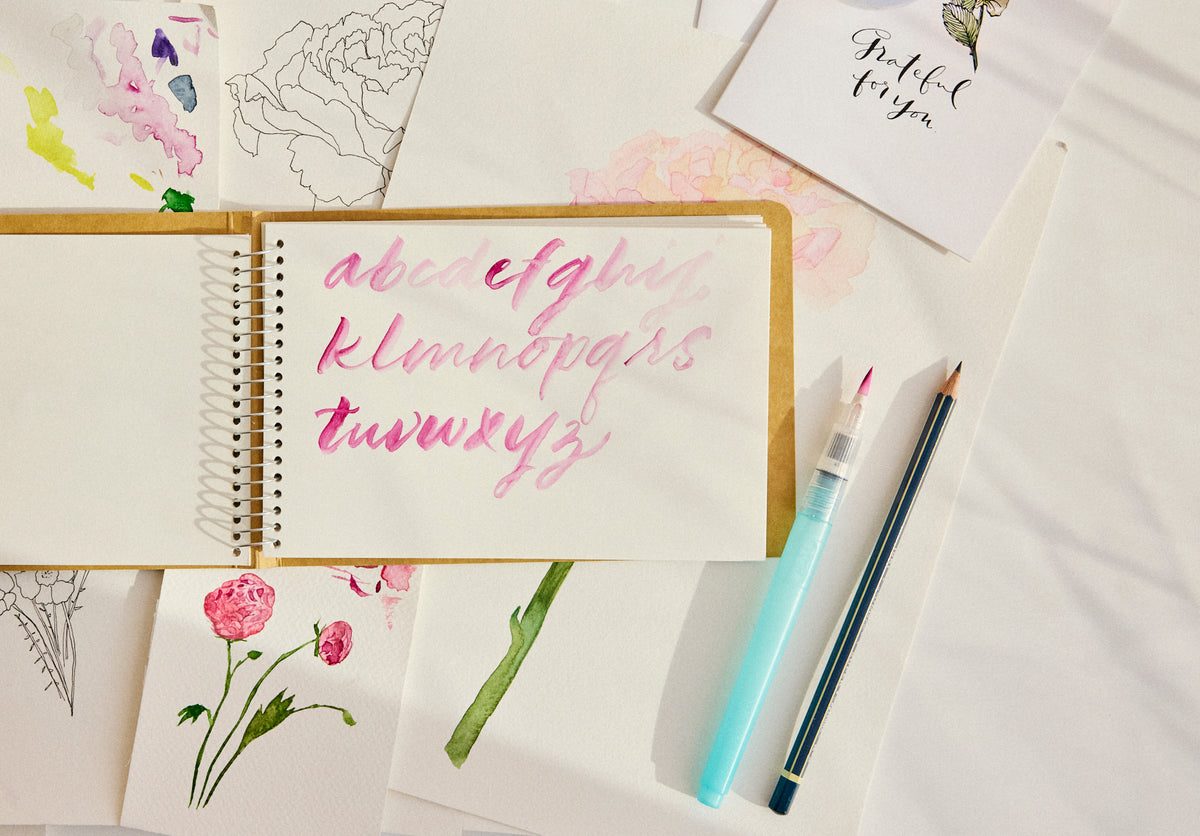 Grateful
for you
abcdefghij
klmnopqrs
tuvwxyz